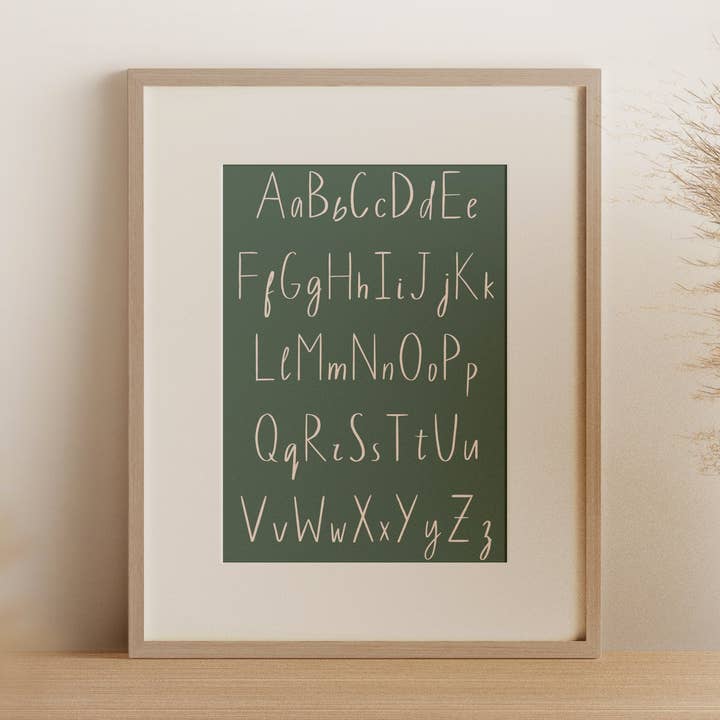 AaBbCcDdEe
FfGgHhIiJjKk
LlMmNnOoPp
QqRrSsTtUu
VvWwXxYyZz